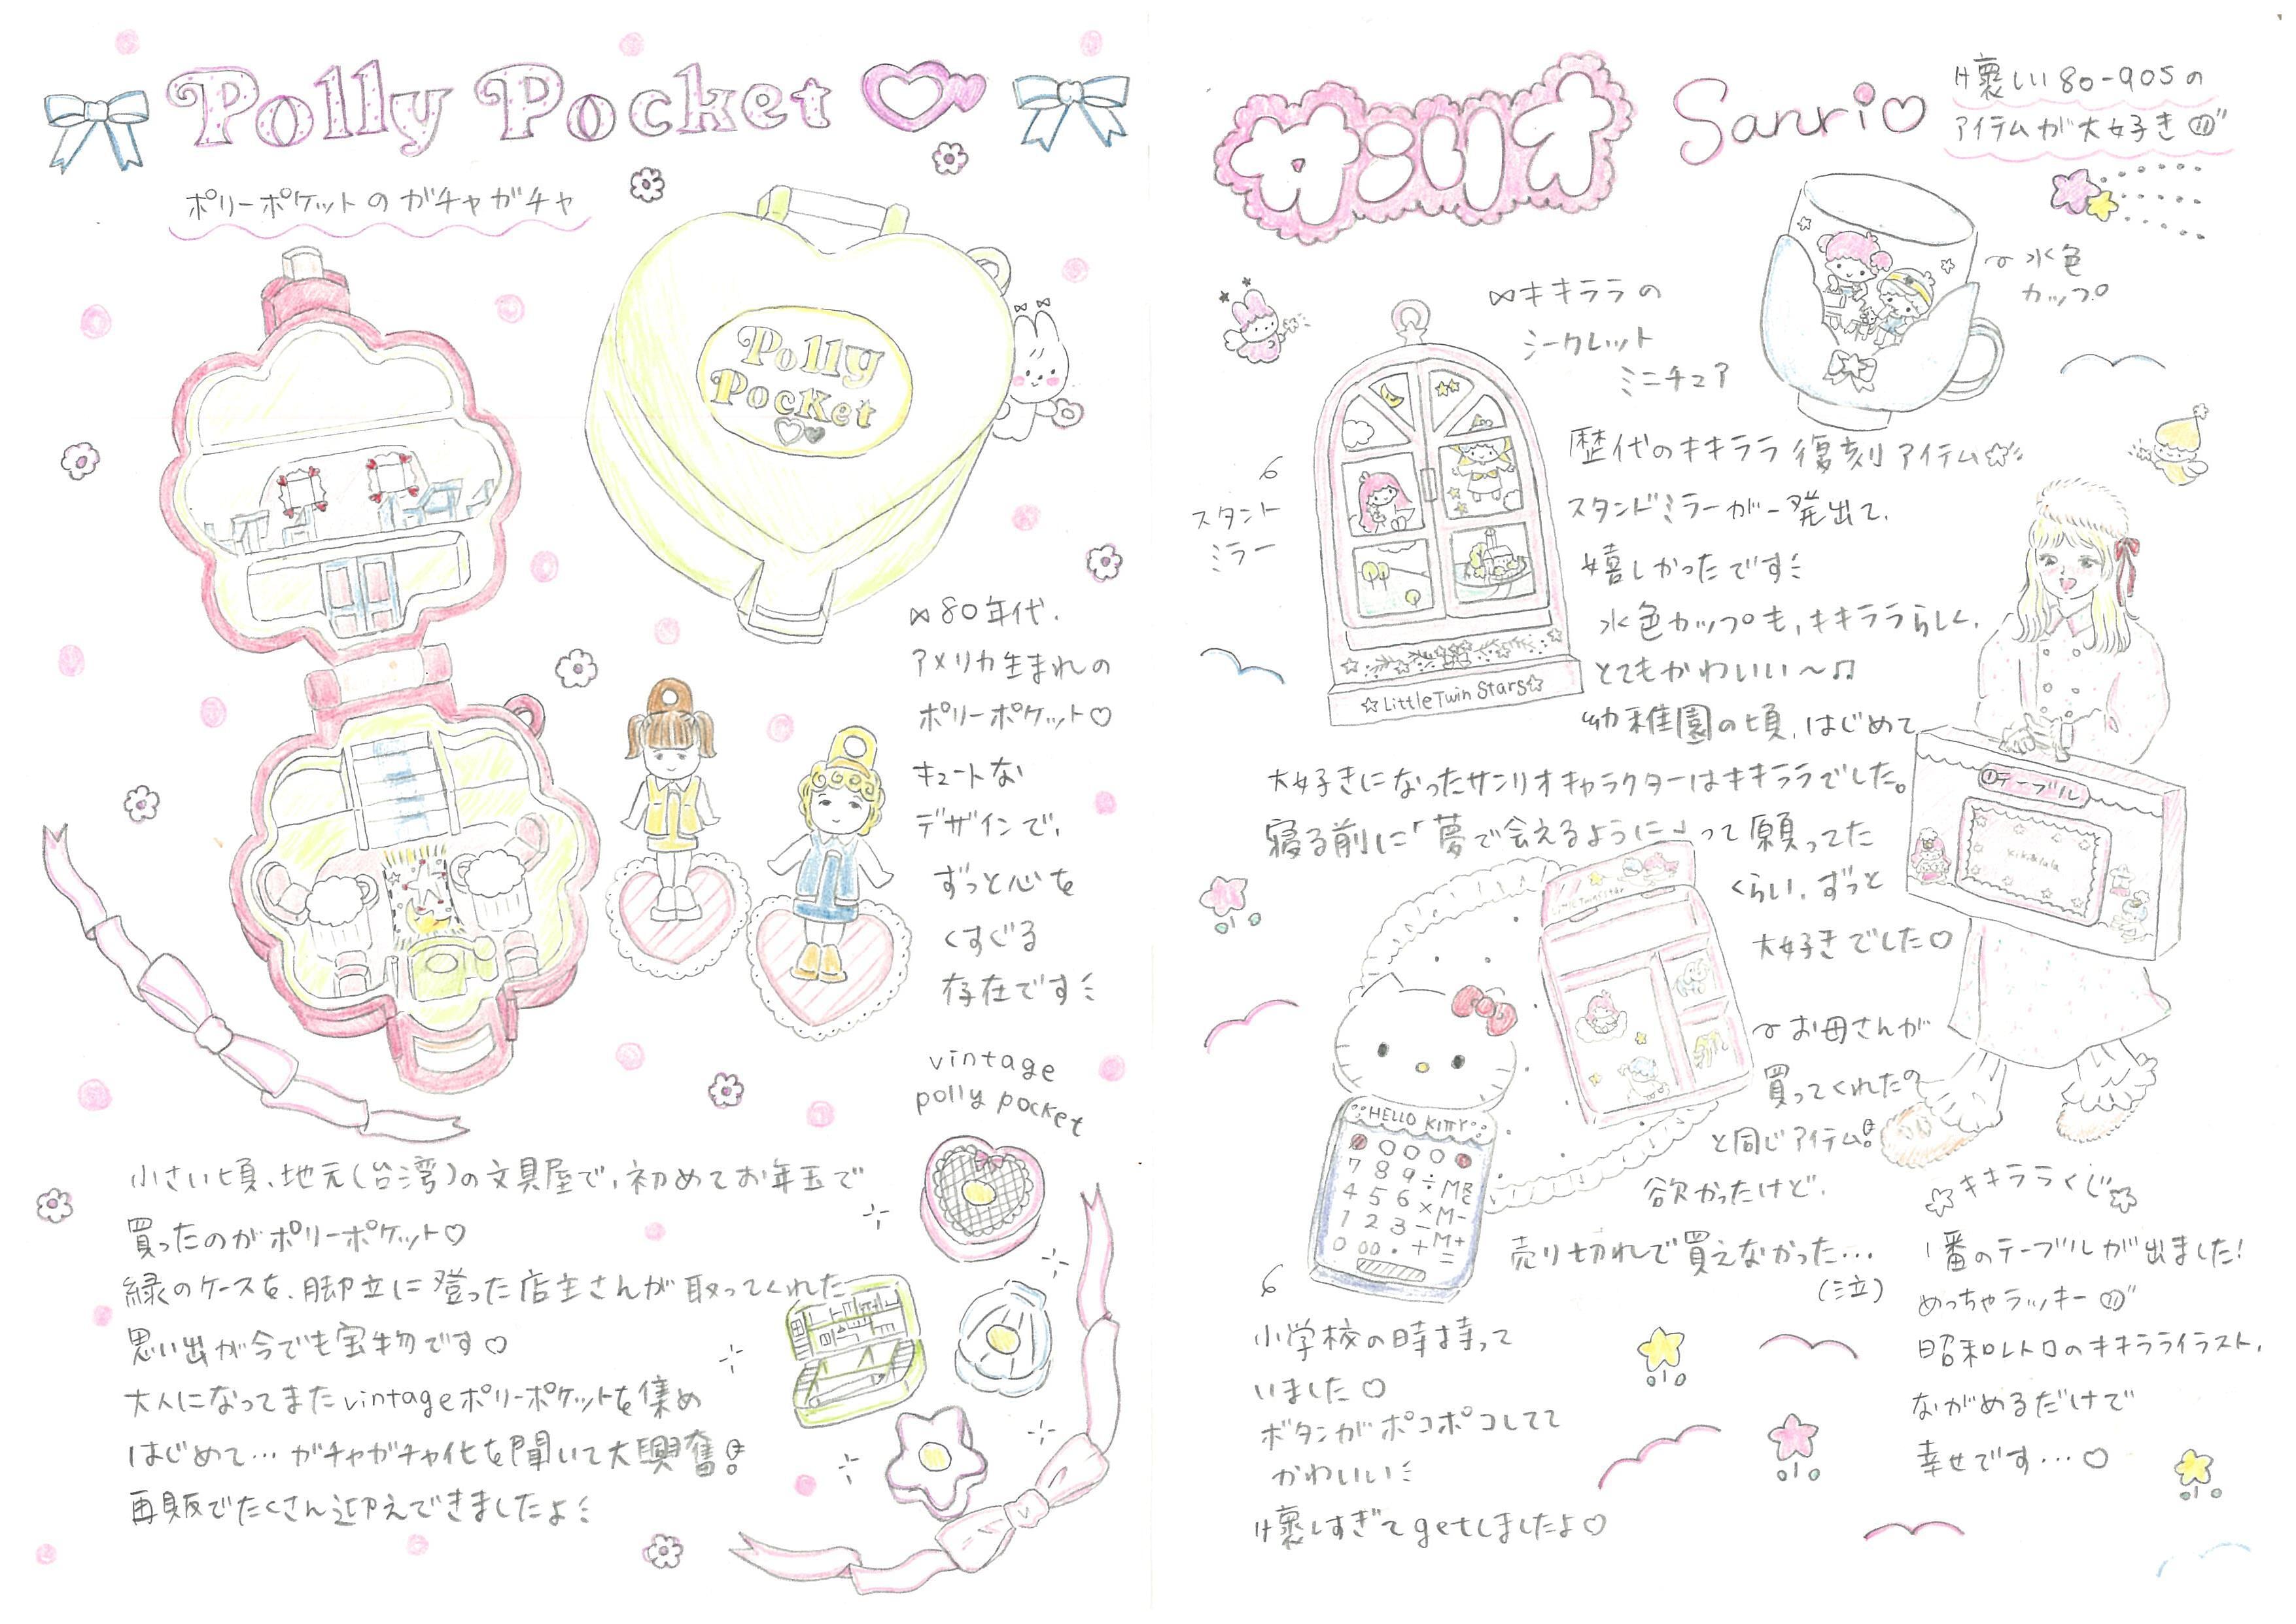 Polly Pocket
ポリーポケットのガチャガチャ
Polly
Pocket
80年代、
アメリカ生まれの
ポリーポケット♡
キュートな
デザインで、
ずっと心を
くすぐる
存在です
vintage
polly pocket
小さい頃、地元(台湾)の文具屋で、初めてお年玉で
買ったのがポリーポケット♡
緑のケースを、脚立に登った店主さんが取ってくれた
思い出が今でも宝物です♡
大人になってまたvintageポリーポケットを集め
はじめて…ガチャガチャ化を聞いて大興奮!
再販でたくさん迎えできましたよ
サンリオ
Sanrio♡
懐しい80-90sの
アイテムが大好き
水色
カップ
キキララの
シークレット
ミニチュア
スタンド
ミラー
☆Little Twin Stars☆
歴代のキキララ復刻アイテム☆
スタンドミラーが一発出て、
嬉しかったです
水色カップも、キキララらしく、
とてもかわいい〜♫
幼稚園の頃、はじめて
大好きになったサンリオキャラクターはキキララでした。
寝る前に「夢で会えるように」って願ってた
くらい、ずっと
大好きでした♡
①テーブル
kiki&lala
お母さんが
買ってくれたの
と同じアイテム!
欲かったけど、
売り切れで買えなかった…
(泣)
HELLO KITTY
7 8 9 ÷ MRC
4 5 6 × M-
1 2 3 - M+
0 00 . + =
小学校の時持って
いました♡
ボタンがポコポコしてて
かわいい
懐しすぎてgetしましたよ♡
☆キキララくじ☆
1番のテーブルが出ました!
めっちゃラッキー
昭和レトロのキキラライラスト、
ながめるだけで
幸せです…♡